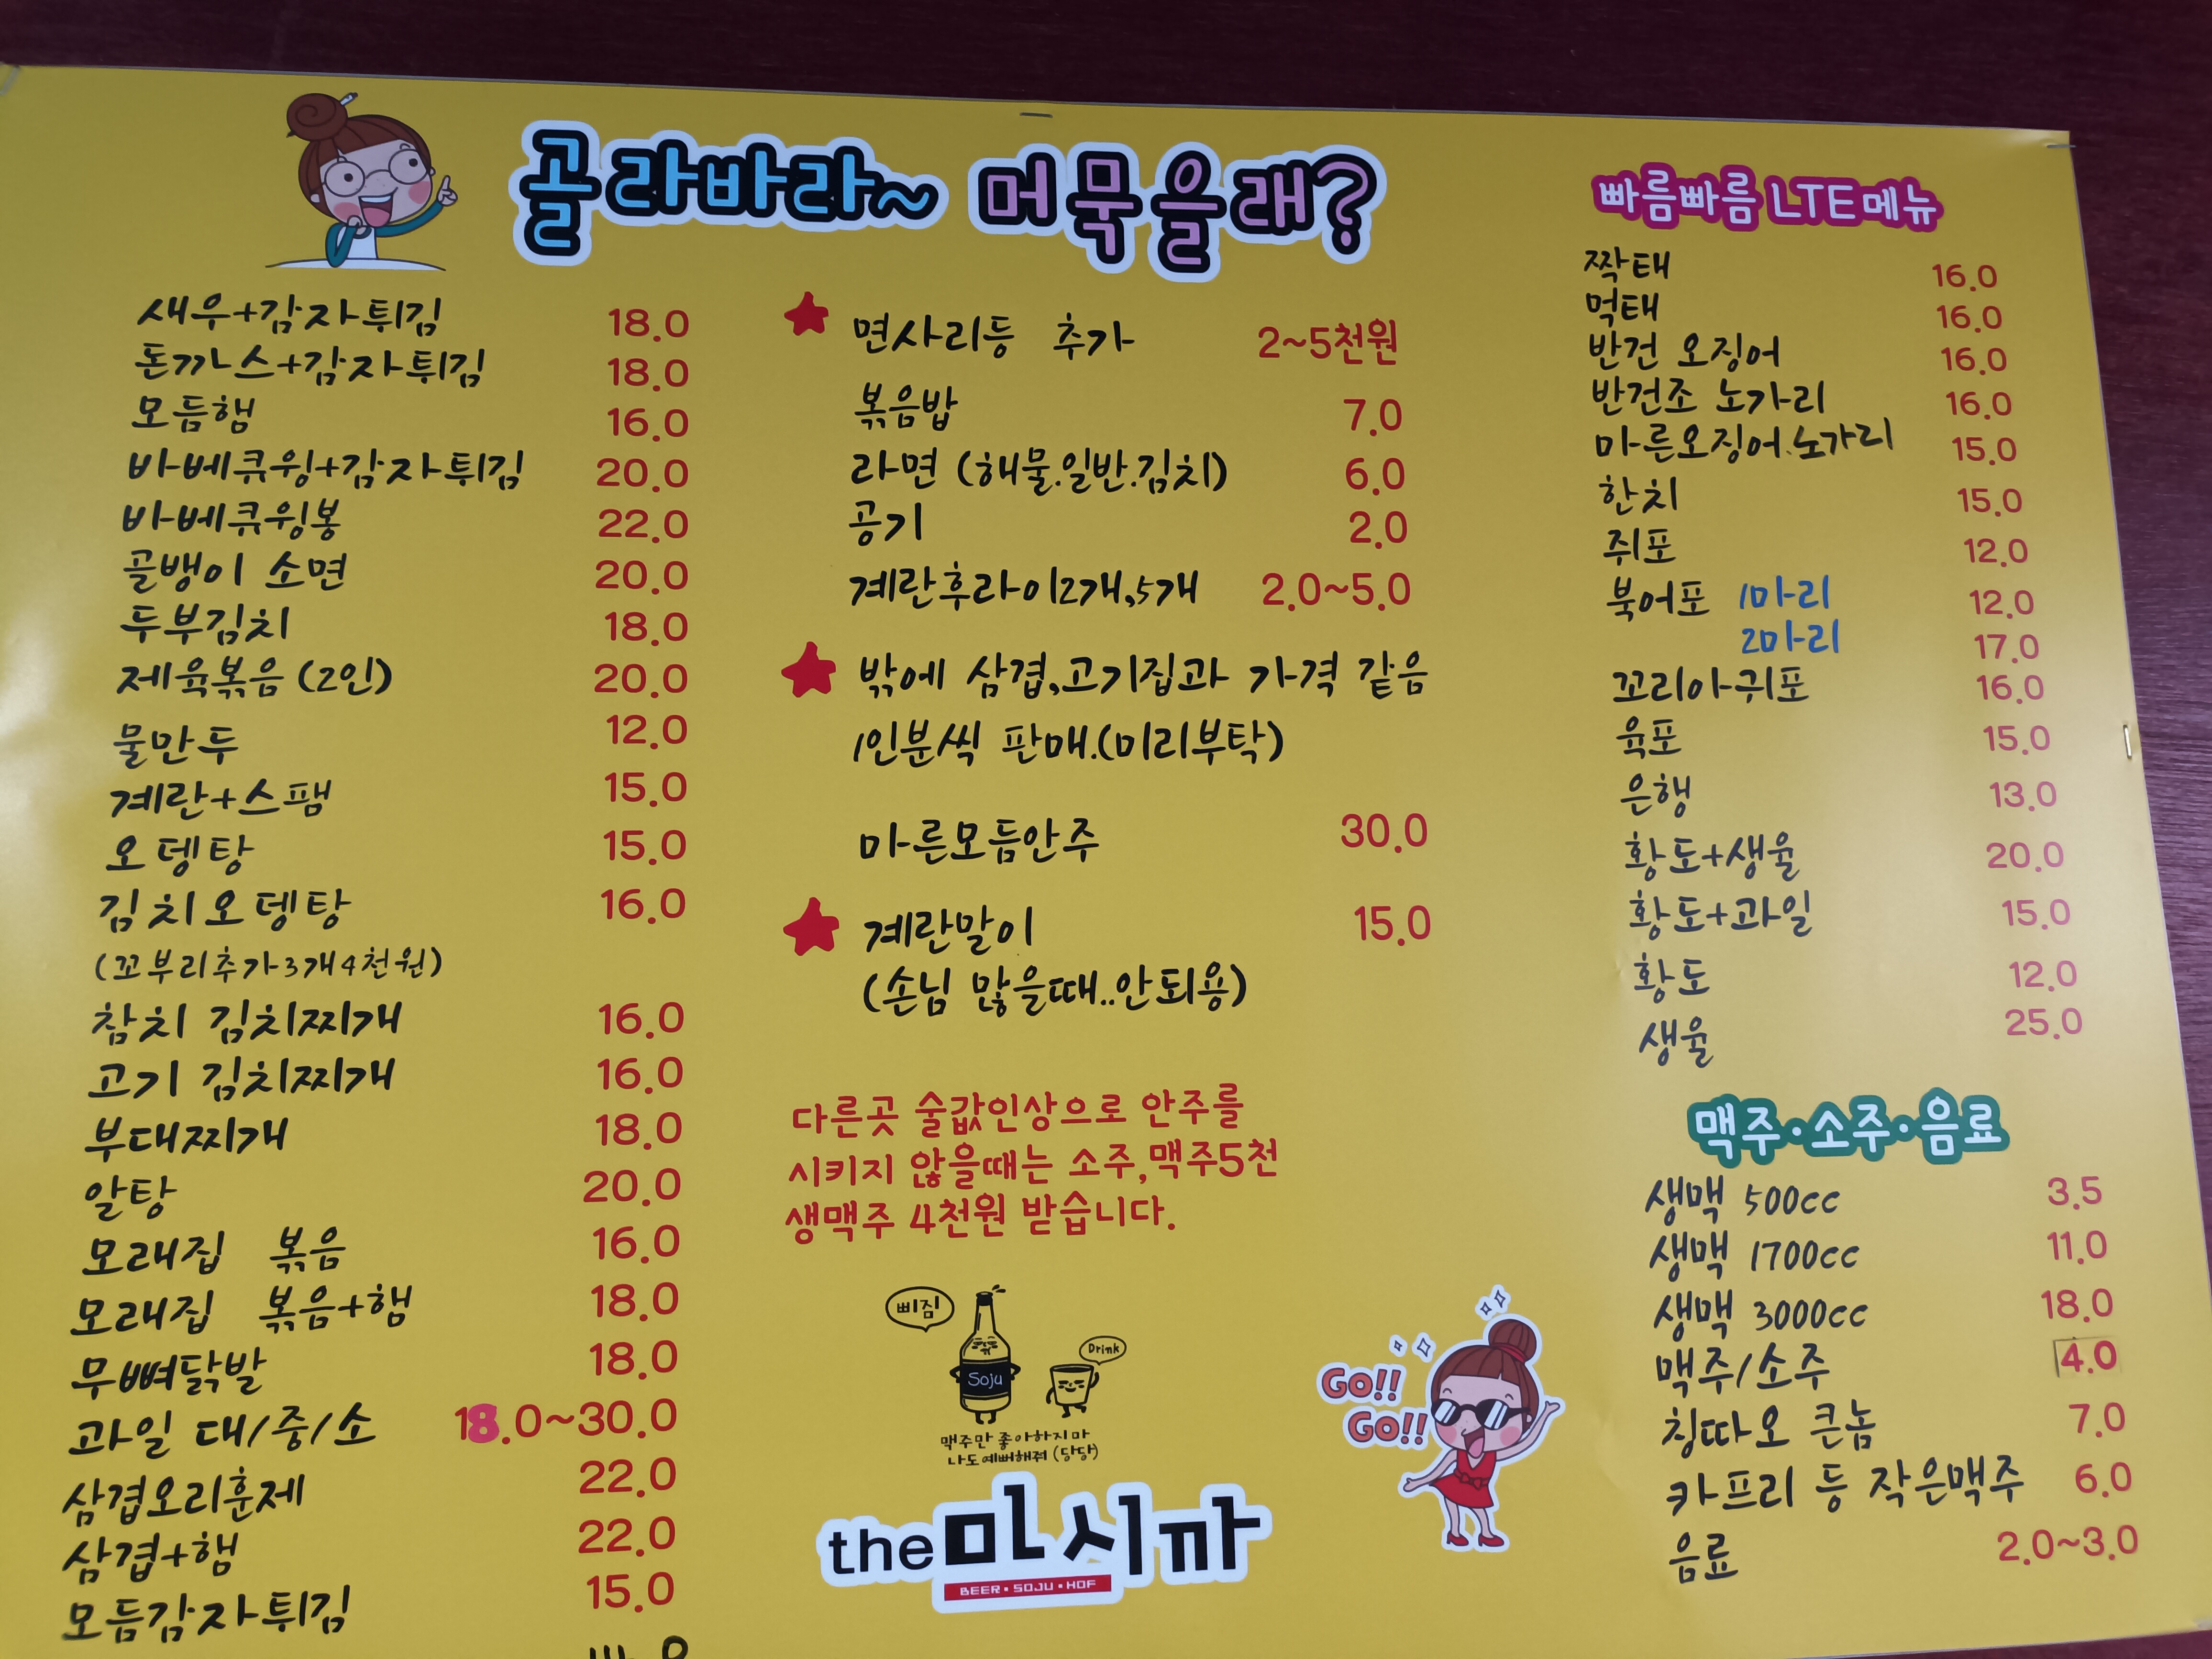 골라바라~ 머묵을래?
새우+감자튀김 18.0
돈까스+감자튀김 18.0
모듬햄 16.0
바베큐윙+감자튀김 20.0
바베큐윙봉 22.0
골뱅이 소면 20.0
두부김치 18.0
제육볶음(2인) 20.0
물만두 12.0
계란+스팸 15.0
오뎅탕 15.0
김치오뎅탕 16.0
(꼬부리추가3개4천원)
참치 김치찌개 16.0
고기 김치찌개 16.0
부대찌개 18.0
알탕 20.0
모래집 볶음 16.0
모래집 볶음+햄 18.0
무뼈닭발 18.0
과일 대/중/소 18.0~30.0
삼겹오리훈제 22.0
삼겹+햄 22.0
모듬감자튀김 15.0
면사리등 추가 2~5천원
볶음밥 7.0
라면 (해물.일반.김치) 6.0
공기 2.0
계란후라이2개,5개 2.0~5.0
밖에 삼겹,고기집과 가격 같음
1인분씩 판매.(미리부탁)
마른모듬안주 30.0
계란말이 15.0
(손님 많을때..안되용)
다른곳 술값인상으로 안주를
시키지 않을때는 소주,맥주5천
생맥주 4천원 받습니다.
삐짐
Drink
Soju
맥주만 좋아하지마
나도예뻐해줘 (당당)
GO!!
GO!!
the마시까
BEER • SOJU • HOF
빠름빠름 LTE메뉴
짝태 16.0
먹태 16.0
반건 오징어 16.0
반건조 노가리 16.0
마른오징어.노가리 15.0
한치 15.0
쥐포 12.0
북어포 1마리 12.0
2마리 17.0
꼬리아귀포 16.0
육포 15.0
은행 13.0
황도+생율 20.0
황도+과일 15.0
황도 12.0
생율 25.0
맥주•소주•음료
생맥 500cc 3.5
생맥 1700cc 11.0
생맥 3000cc 18.0
맥주/소주 4.0
칭따오 큰놈 7.0
카프리 등 작은맥주 6.0
음료 2.0~3.0